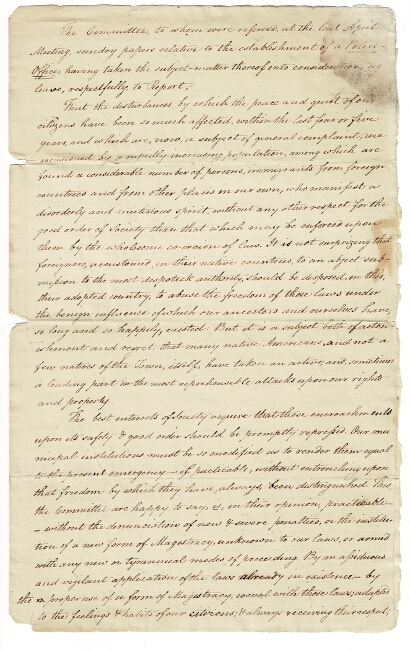 The Committee, to whom were referred, at the last April
Meeting, sundry papers relative to the establishment of a Police
Office, having taken the subject-matter thereof into consideration, ask
leave, respectfully to Report,
That the disturbances by which the peace and quiet of our
citizens have been so much affected, within the last four or five
years, and which are, now, a subject of general complaint, are
occasioned by a rapidly increasing population, among which are
found a considerable number of persons, immigrants from foreign
countries and from other places in our own, who manifest a
disorderly and mutinous spirit, without any other respect for the
good order of Society than that which may be enforced upon
them by the wholesome coercion of laws. It is not surprising that
foreigners, accustomed, in their native countries, to an abject sub-
mission to the most despotick authority, should be disposed, in this,
their adopted country, to abuse the freedom of those laws under
the benign influence of which our ancestors and ourselves have,
so long and so happily, existed. But it is a subject both of aston-
ishment and regret, that many native Americans, and not a
few natives of the Town, itself, have taken an active, and, sometimes
a leading part in the most reprehensible attacks upon our rights
and property.
The best interests of Society require that these encroachments
upon its safety & good order should be promptly repressed. Our mu-
nicipal institutions must be so modified as to render them equal
to the present emergency — if practicable, without entrenching upon
that freedom by which they have, always, been distinguished. This
the Committee are happy to say, is, in their opinion, practicable
— without the denunciation of new & severe penalties, or the institu-
tion of a new form of Magistracy, unknown to our laws, or armed
with any new or tyrannical modes of proceeding. By an assiduous
and vigilant application of the laws already in existence — by
the proper use of a form of Magistracy, coeval with those laws, adapted
to the feelings & habits of our citizens, & always receiving their respect,